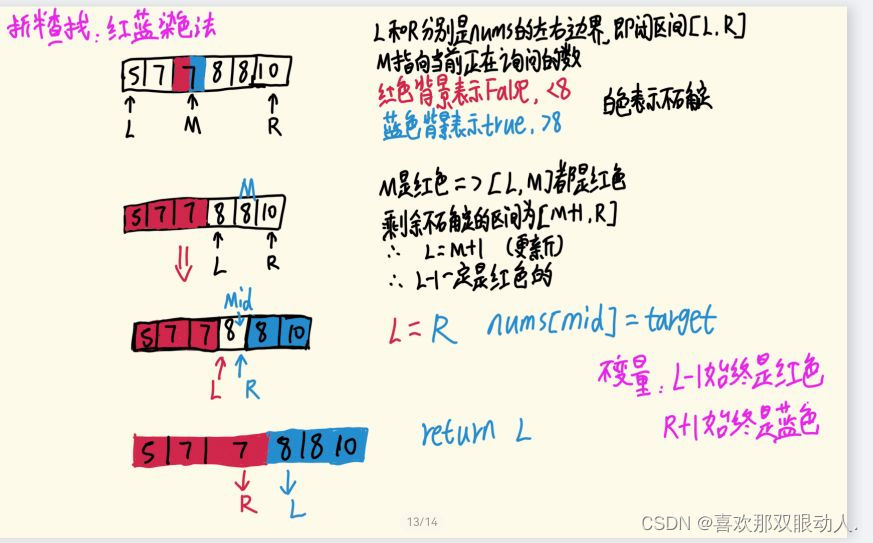 折半查找：红蓝染色法
L和R分别是nums的左右边界，即闭区间[L,R]
M指向当前正在询问的数
红色背景表示False，<8
蓝色背景表示true，>8
白色表示不确定
5 7 7 8 8 10
L M R
M是红色=>[L,M]都是红色
剩余不确定的区间为[M+1,R]
∴ L=M+1 (更新)
∴ L-1一定是红色的
M
5 7 7 8 8 10
L R
Mid
5 7 7 8 8 10
L R
L=R nums[mid]=target
不变量：L-1始终是红色
R+1始终是蓝色
5 7 7 8 8 10
R L
return L
13/14
CSDN @喜欢那双眼动人.